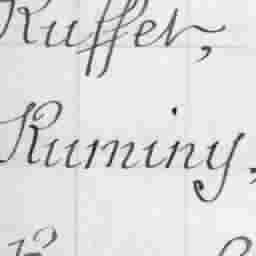 Ruffer,
Ruminy,